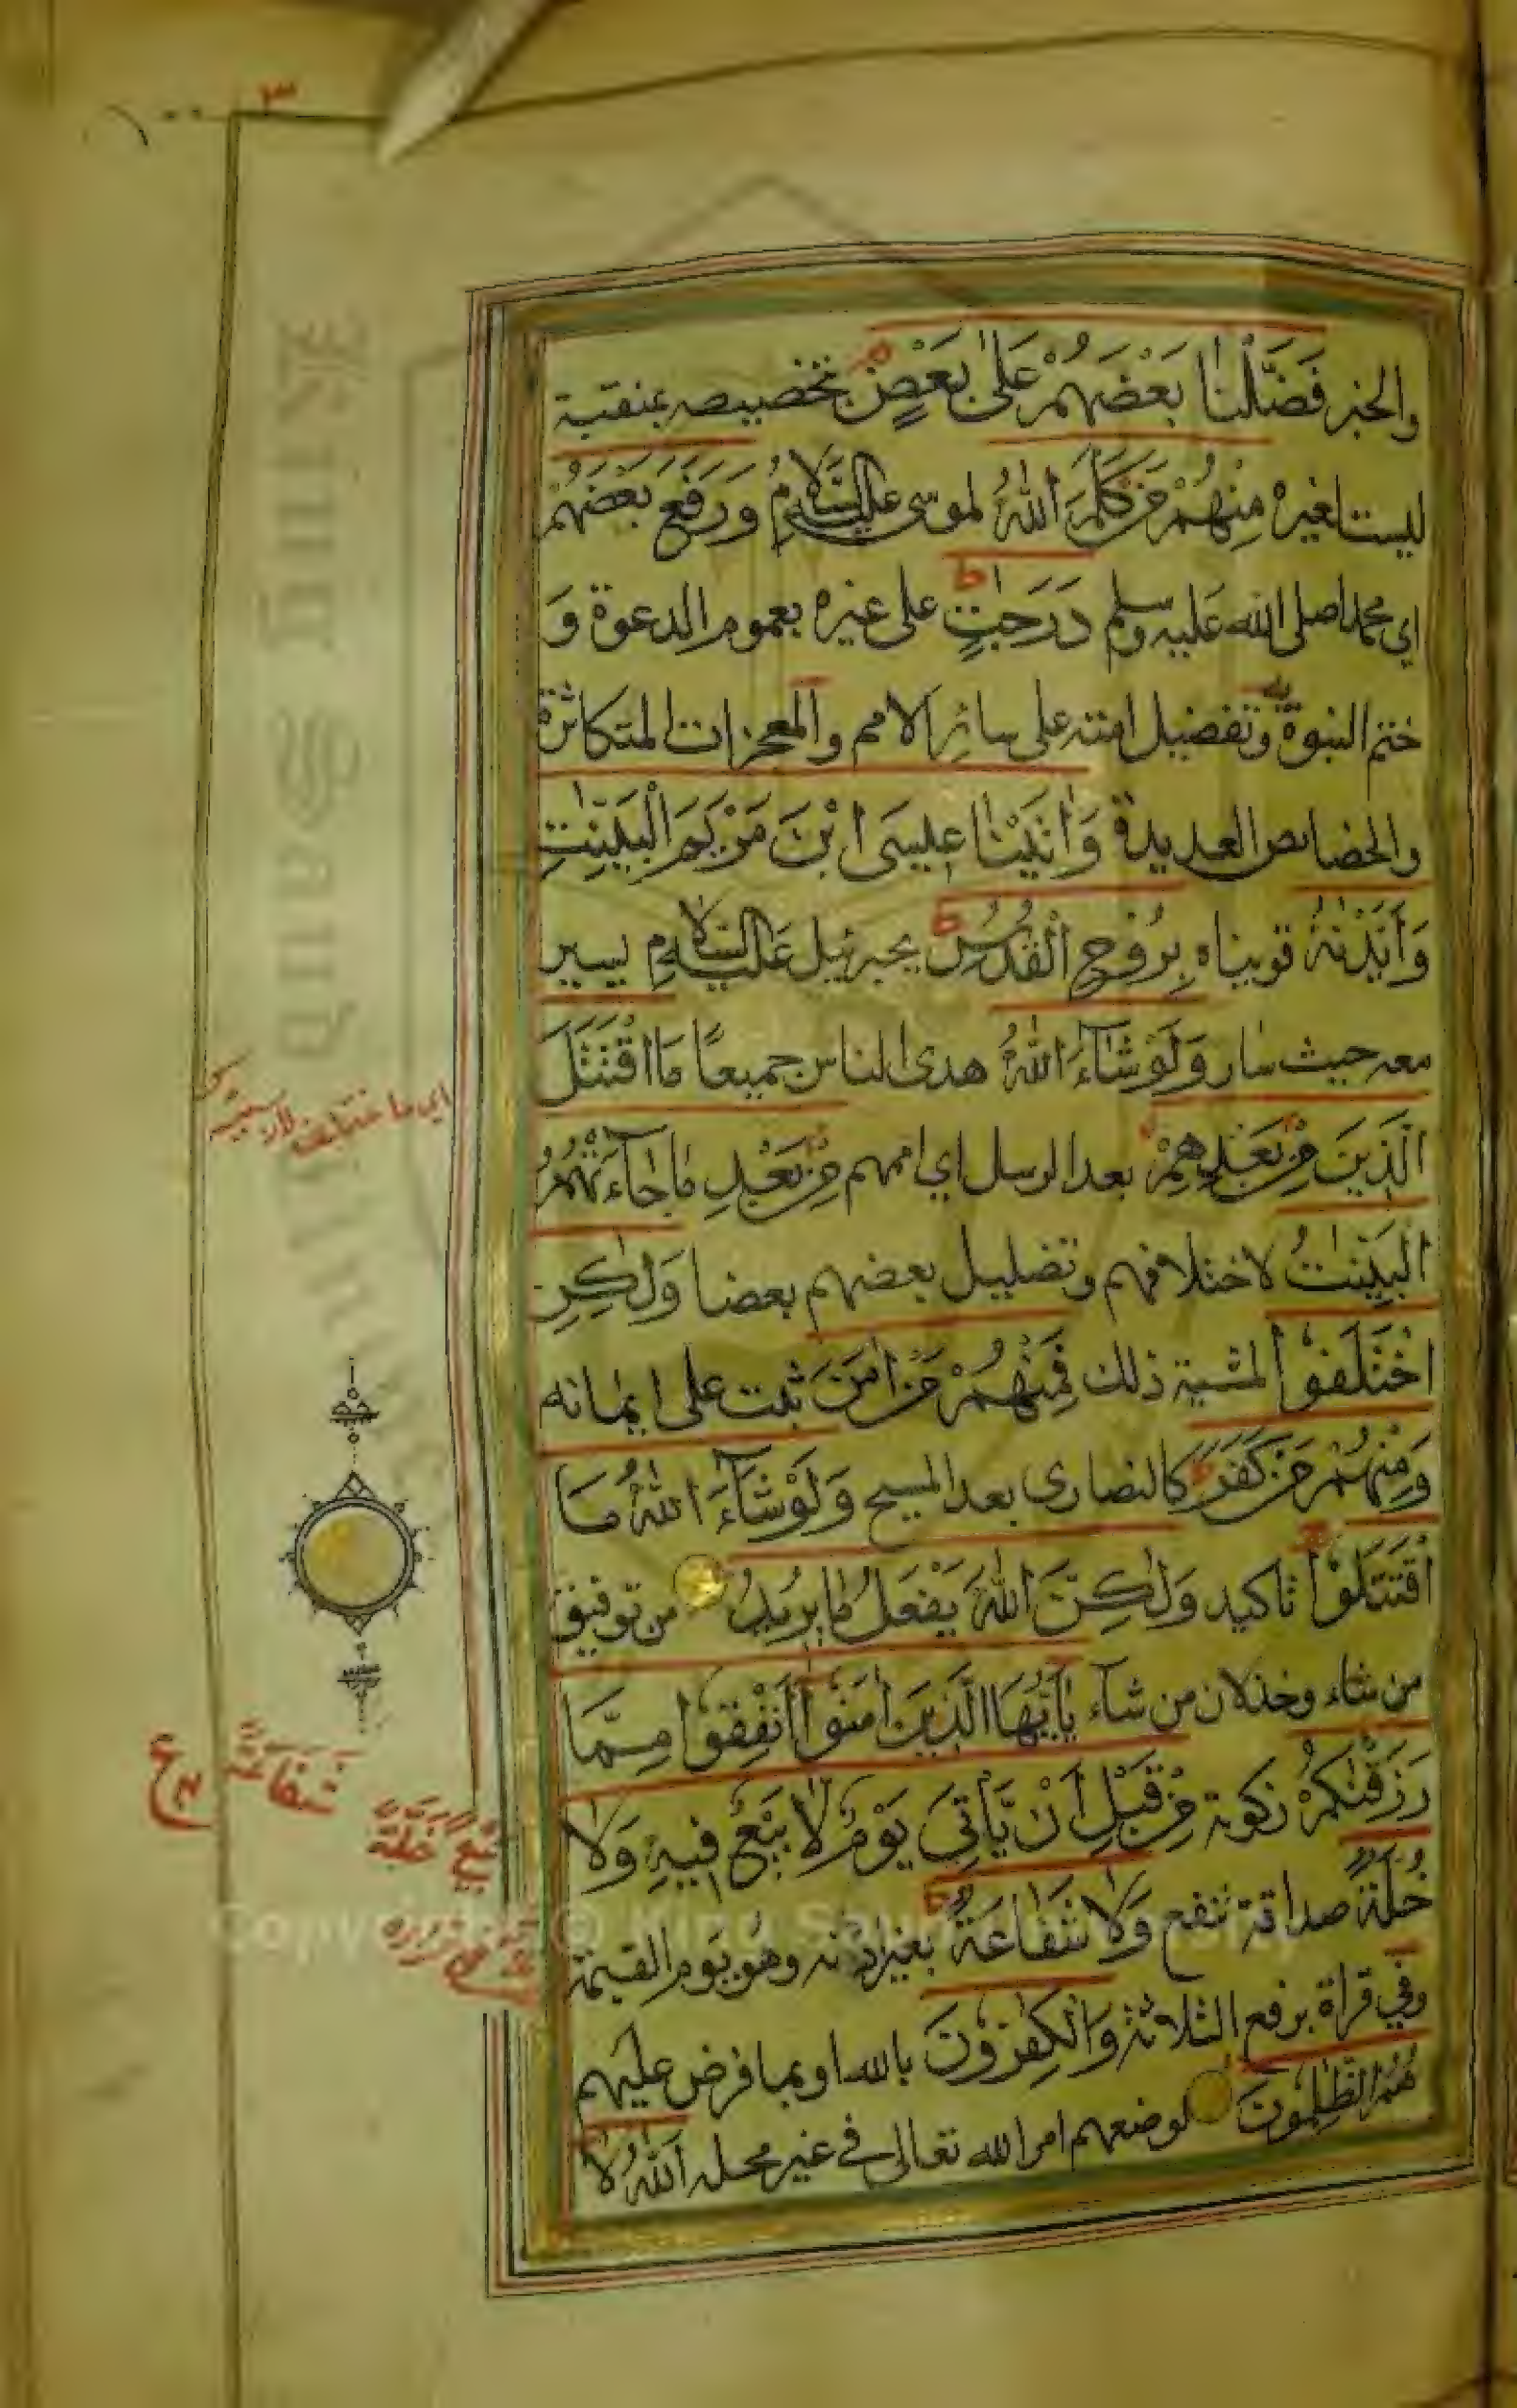 والخبر فَضَّلْنَا بَعْضَهُمْ عَلَىٰ بَعْضٍ بتخصيصه بمنقبة
ليست لغيره مِنْهُمْ مَنْ كَلَّمَ اللّٰهُ لموسى عليه السَّلامُ وَرَفَعَ بَعْضَهُمْ
اي محمدا صلى الله عَليه وسلم دَرَجٰتٍ على غيره بعموم الدعوة وَ
ختم النبوة به وتفضيل امته على سائر الامم والمعجزات المتكاثرة
والخصايص العديدة وَاٰتَيْنَا عِيسَى ابْنَ مَرْيَمَ الْبَيِّنٰتِ
وَاَيَّدْنٰهُ قويناه بِرُوحِ الْقُدُسِ بجبرئيل عَليه السَّلام يسير
معه حيث سار وَلَوْ شَآءَ اللّٰهُ هدى الناس جميعًا مَا اقْتَتَلَ
الَّذِينَ مِنْ بَعْدِهِمْ بعد الرسل اي اممهم مِنْ بَعْدِ مَا جَآءَتْهُمُ
الْبَيِّنٰتُ لاختلافهم وتضليل بعضهم بعضا وَلٰكِنِ
اخْتَلَفُوا لمشية ذلك فَمِنْهُمْ مَنْ اٰمَنَ ثبت على ايمانه
وَمِنْهُمْ مَنْ كَفَرَ كالنصارى بعد المسيح وَلَوْ شَآءَ اللّٰهُ مَا
اقْتَتَلُوا تاكيد وَلٰكِنَّ اللّٰهَ يَفْعَلُ مَا يُرِيدُ من توفيق
من شاء وخذلان من شآء يٰاَيُّهَا الَّذِينَ اٰمَنُوا اَنْفِقُوا مِمَّا
رَزَقْنٰكُمْ زكوته مِنْ قَبْلِ اَنْ يَّأْتِيَ يَوْمٌ لَا بَيْعٌ فِيهِ وَلَا
خُلَّةٌ صداقة تنفع وَلَا شَفَاعَةٌ بغير اذنه وهو يَوم القيمة
وفي قراة برفع الثلاثة وَالْكٰفِرُونَ بالله او بما فرض عليهم
هُمُ الظّٰلِمُونَ لوضعهم امر الله تعالى في غير محله اَللّٰهُ لَا
اي ما اختلفوا
شَفَاعَةَ
بَيْعَ خُلَّةَ
١٠٠
٣
King Saud University
Copyright © King Saud University